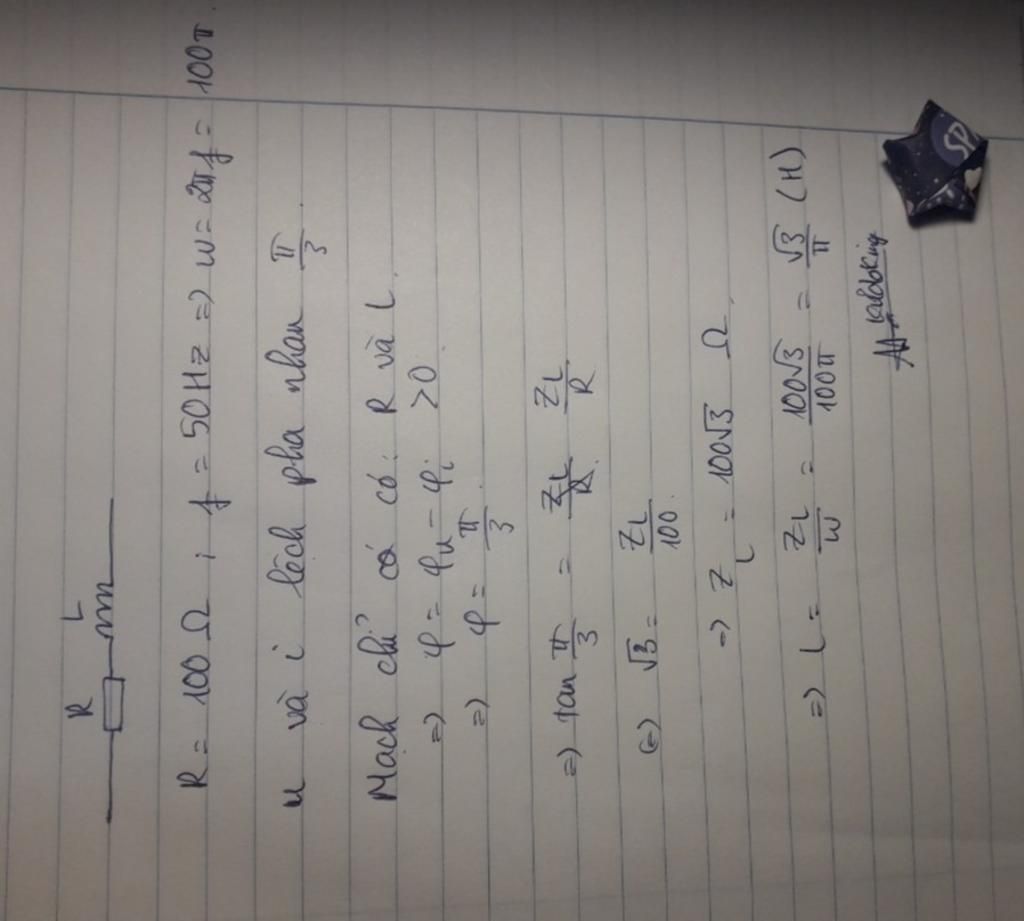 R L
R = 100 Ω ; f = 50Hz => w = 2πf = 100π
u và i lệch pha nhau π/3.
Mạch chỉ có có: R và L.
=> φ = φu - φi > 0.
=> φ = π/3.
=> tan π/3 = ZL/R. ZL/R
(=) √3 = ZL/100.
=> ZL = 100√3 Ω.
=> L = ZL/w = 100√3/100π = √3/π (H)
SP